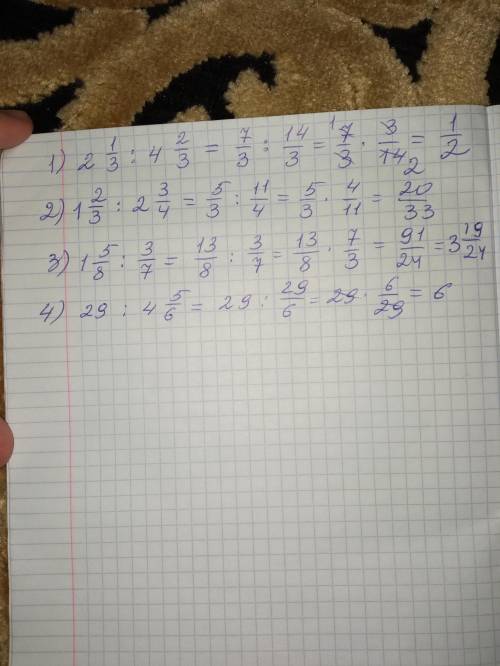 1) 2 1/3 : 4 2/3 = 7/3 : 14/3 = 7/3 · 3/14 = 1/2
2) 1 2/3 : 2 3/4 = 5/3 : 11/4 = 5/3 · 4/11 = 20/33
3) 1 5/8 : 3/7 = 13/8 : 3/7 = 13/8 · 7/3 = 91/24 = 3 19/24
4) 29 : 4 5/6 = 29 : 29/6 = 29 · 6/29 = 6